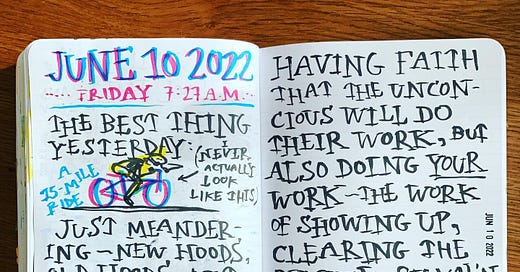 JUNE 10 2022
FRIDAY 7:27 A.M.
THE BEST THING
YESTERDAY:
A
15-MILE
RIDE
(NEVER
ACTUALLY
LOOK
LIKE THIS)
JUST MEANDER-
ING—NEW HOODS,
OLD HOODS,
HAVING FAITH
THAT THE UNCON-
CIOUS WILL DO
THEIR WORK, BUT
ALSO DOING YOUR
WORK—THE WORK
OF SHOWING UP,
CLEARING THE
JUN 10 2022